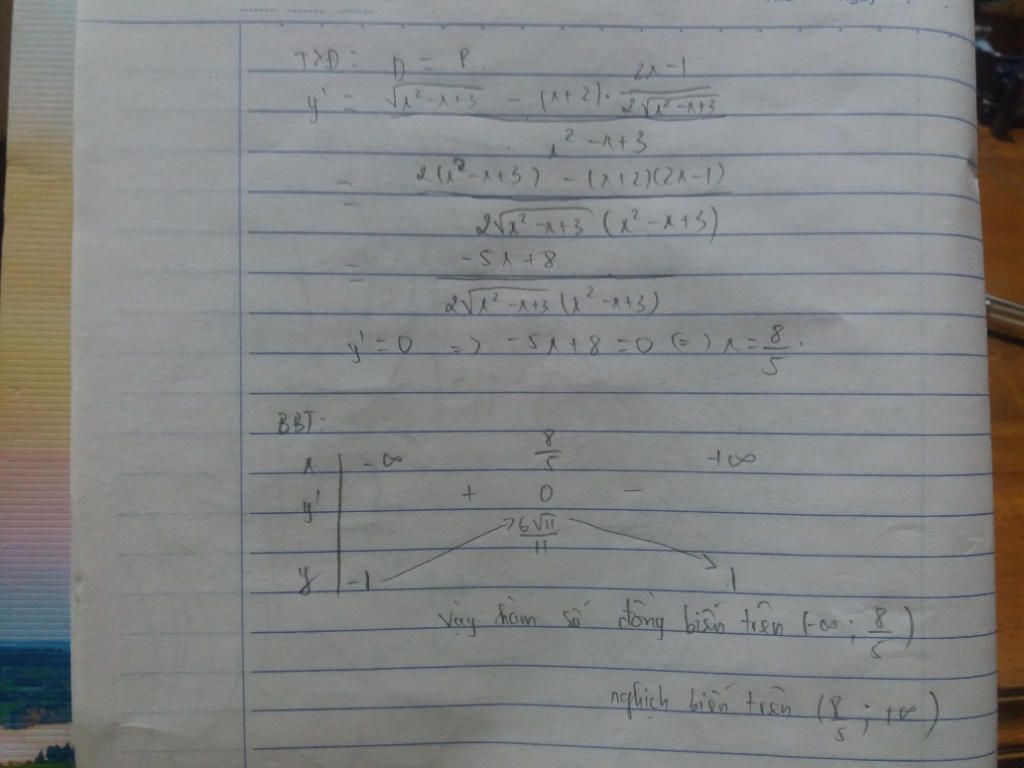 TXĐ: D = R.
y' = \frac{\sqrt{x^2-x+3} - (x+2) \cdot \frac{2x-1}{2\sqrt{x^2-x+3}}}{x^2-x+3}
= \frac{2(x^2-x+3) - (x+2)(2x-1)}{2\sqrt{x^2-x+3}(x^2-x+3)}
= \frac{-5x+8}{2\sqrt{x^2-x+3}(x^2-x+3)}
y'=0 => -5x+8=0 (=) x=\frac{8}{5}.
BBT:
x -∞ \frac{8}{5} +∞
y' + 0 -
\frac{6\sqrt{11}}{11}
y -1 1
vậy hàm số đồng biến trên (-∞; \frac{8}{5})
nghịch biến trên (\frac{8}{5}; +∞)